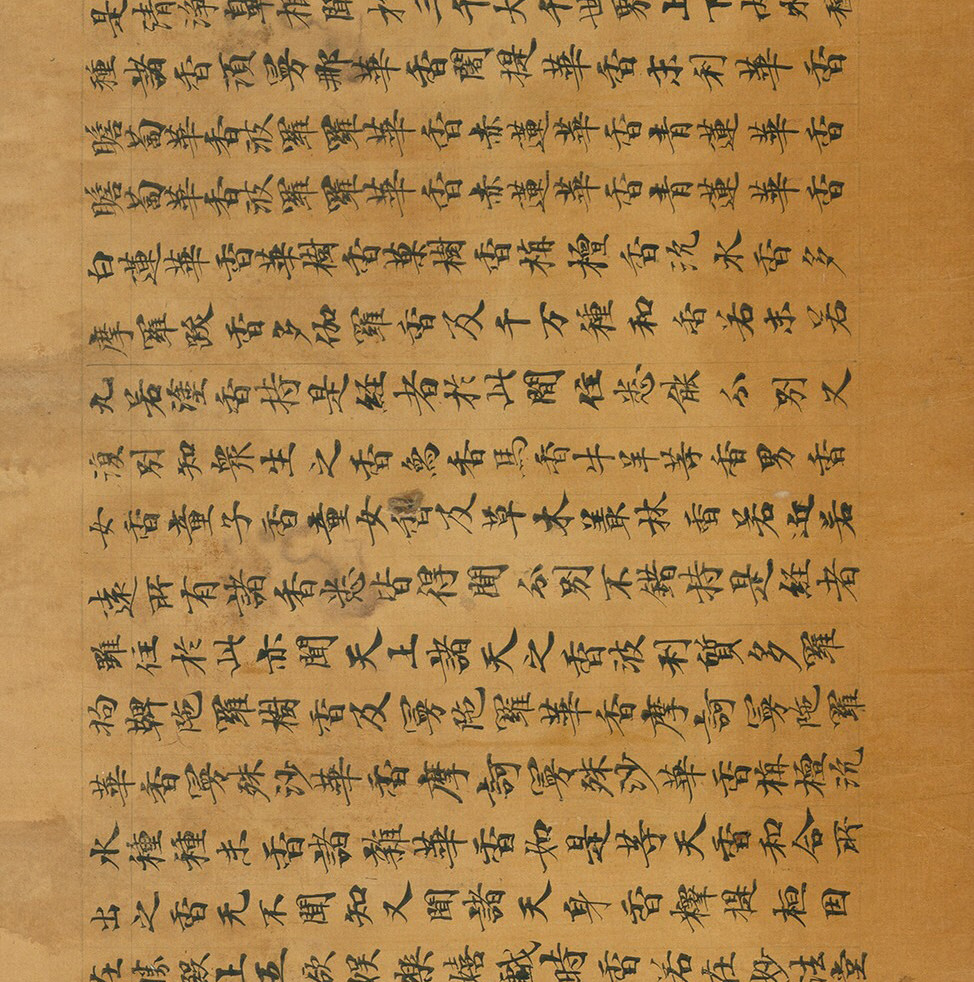 是清淨鼻根聞於三千大千世界上下內外種
種諸香須曼那華香闍提華香末利華香
瞻蔔華香波羅羅華香赤蓮華香青蓮華香
瞻蔔華香波羅羅華香赤蓮華香青蓮華香
白蓮華香華樹香菓樹香栴檀香沉水香多
摩羅跋香多伽羅香及千万種和香若末若
丸若塗香持是経者於此間住悉能分別又
復別知衆生之香象香馬香牛羊等香男香
女香童子香童女香及草木藂林香若近若
遠所有諸香悉皆得聞分別不錯持是経者
雖住於此亦聞天上諸天之香波利質多羅
拘鞞陀羅樹香及曼陀羅華香摩訶曼陀羅
華香曼殊沙華香摩訶曼殊沙華香栴檀沉
水種種末香諸雜華香如是等天香和合所
出之香无不聞知又聞諸天身香釋提桓因
在勝殿上五欲娛樂嬉戲時香若在妙法堂